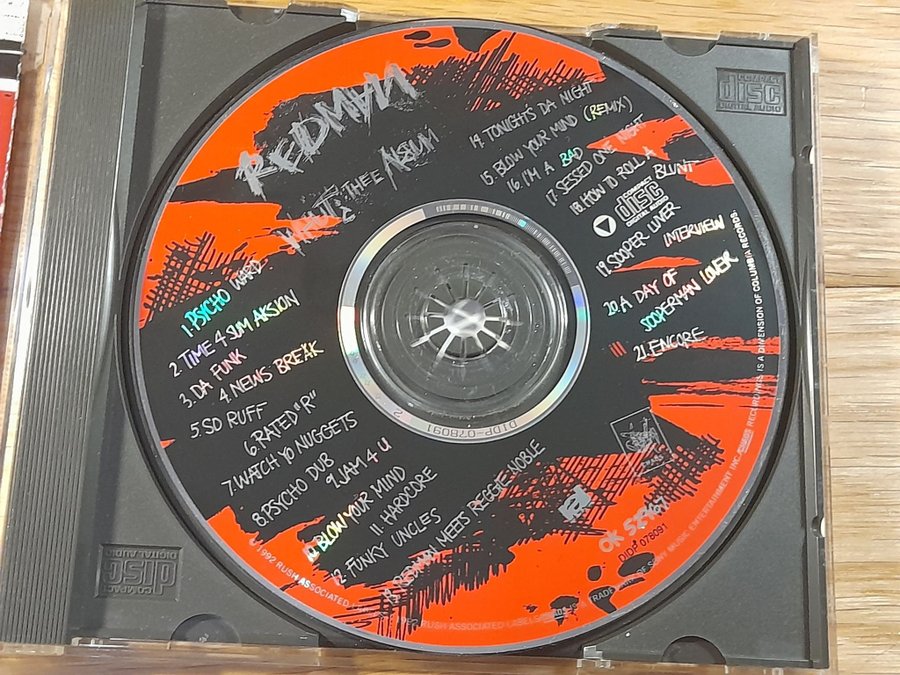 REDMAN
WHUT? THEE ALBUM
1. PSYCHO WARD
2. TIME 4 SUM AKSION
3. DA FUNK
4. NEWS BREAK
5. SO RUFF
6. RATED "R"
7. WATCH YO NUGGETS
8. PSYCHO DUB
9. JAM 4 U
10. BLOW YOUR MIND
11. HARDCORE
12. FUNKY UNCLES
13. REDMAN MEETS REGGIE NOBLE
14. TONIGHT'S DA NIGHT
15. BLOW YOUR MIND (REMIX)
16. I'M A BAD
17. SESSED ONE NIGHT
18. HOW TO ROLL A
BLUNT
COMPACT
disc
DIGITAL AUDIO
19. SOOPER LUVER
INTERVIEW
20. A DAY OF
SOOPERMAN LOVER
21. ENCORE
ral
OK 52967
DIDP 078091
DIDP-078091 2
1992 RUSH ASSOCIATED
RUSH ASSOCIATED LABELS
SONY MUSIC ENTERTAINMENT INC.
RECORDINGS IS A DIVISION OF COLUMBIA RECORDS.
COMPACT
disc
DIGITAL AUDIO
COMPACT
disc
DIGITAL AUDIO